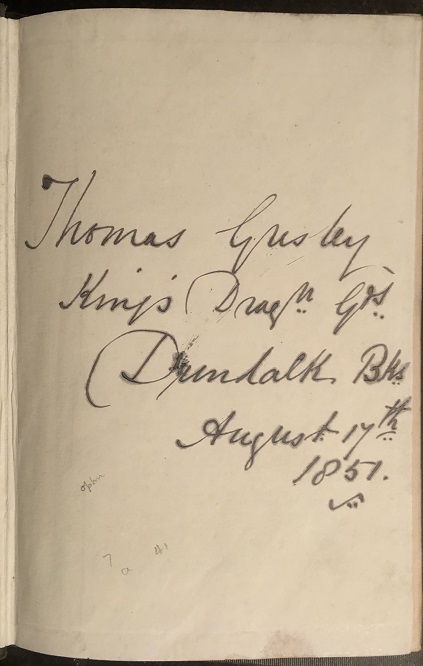 Thomas Gresley
King's Dragn Gds
Dundalk Bks
August 17th
1851.
7 a 41